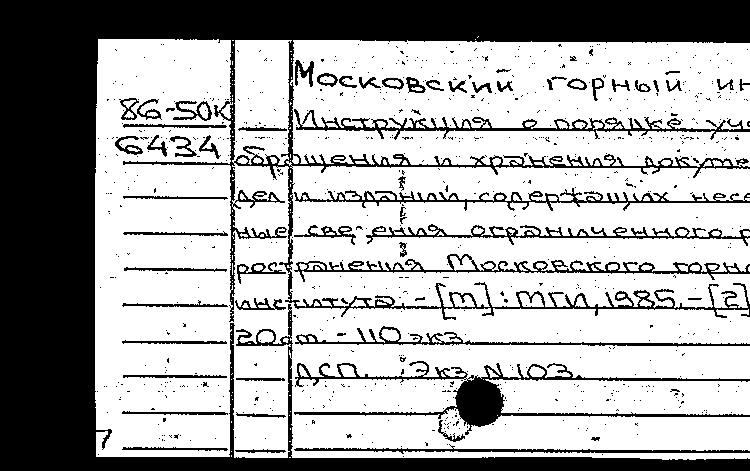 Московский горный ин
86-50К
Инструкция о порядке уче
6434
обращения и хранения докуме
дел и изданий, содержащих несе
ные сведения ограниченного р
ространения Московского горн
института. - [М] : МГИ, 1985. - [2]
20 см. - 110 экз.
ДСП. Экз. N 103.